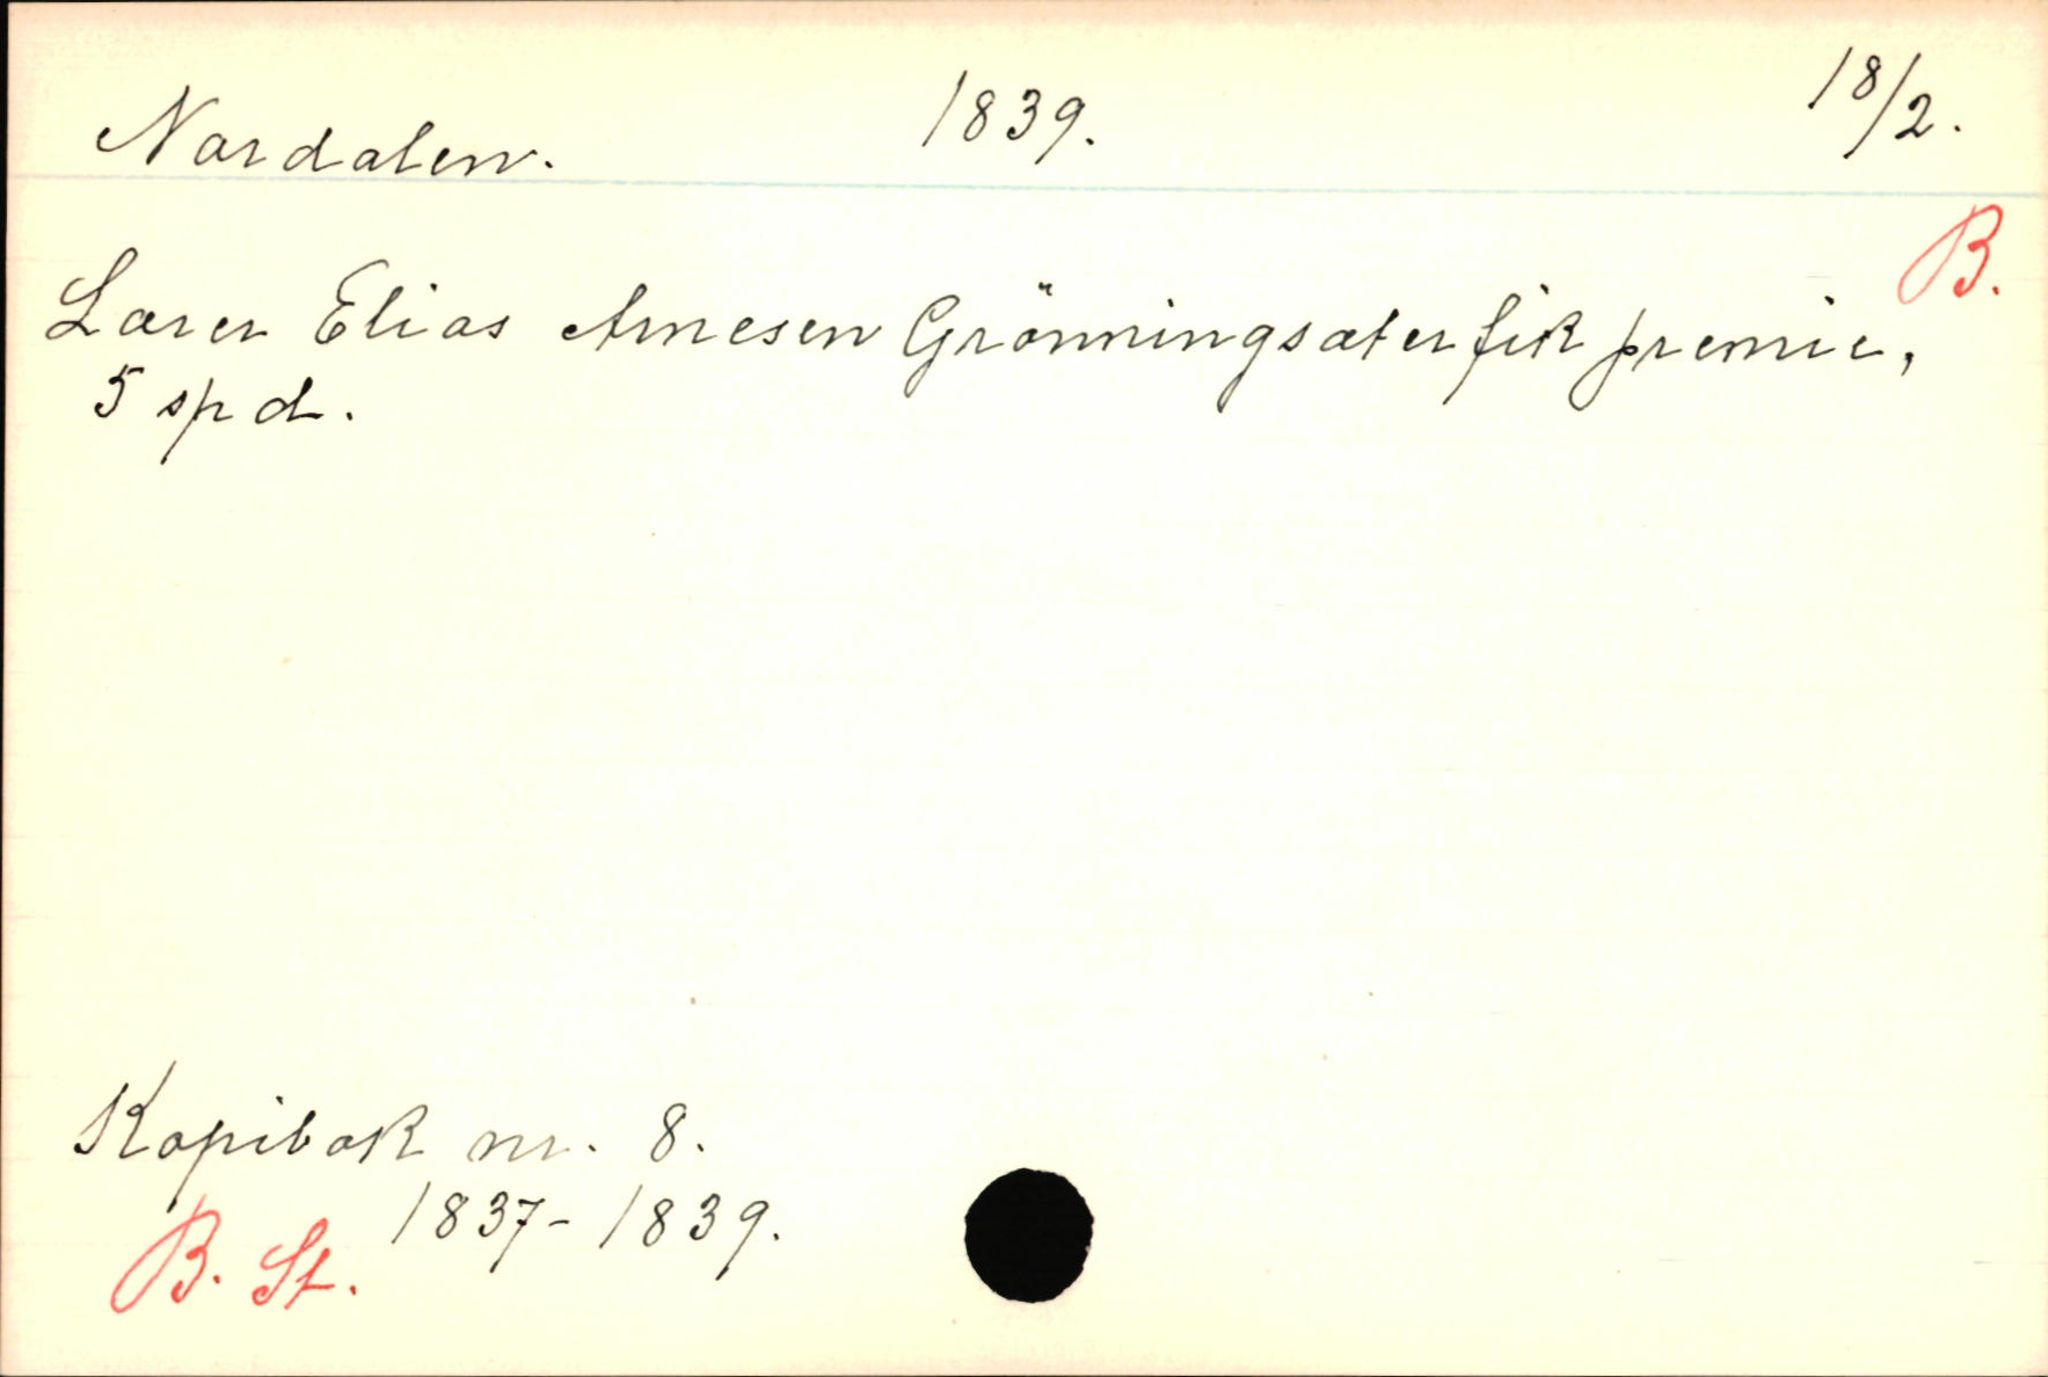 Nordalen. 1839. 18/2.
B.
Lærer Elias Arnesen Grönningsæter fik premie,
5 spd.
Kopibok nr. 8.
1837-1839.
B. St.